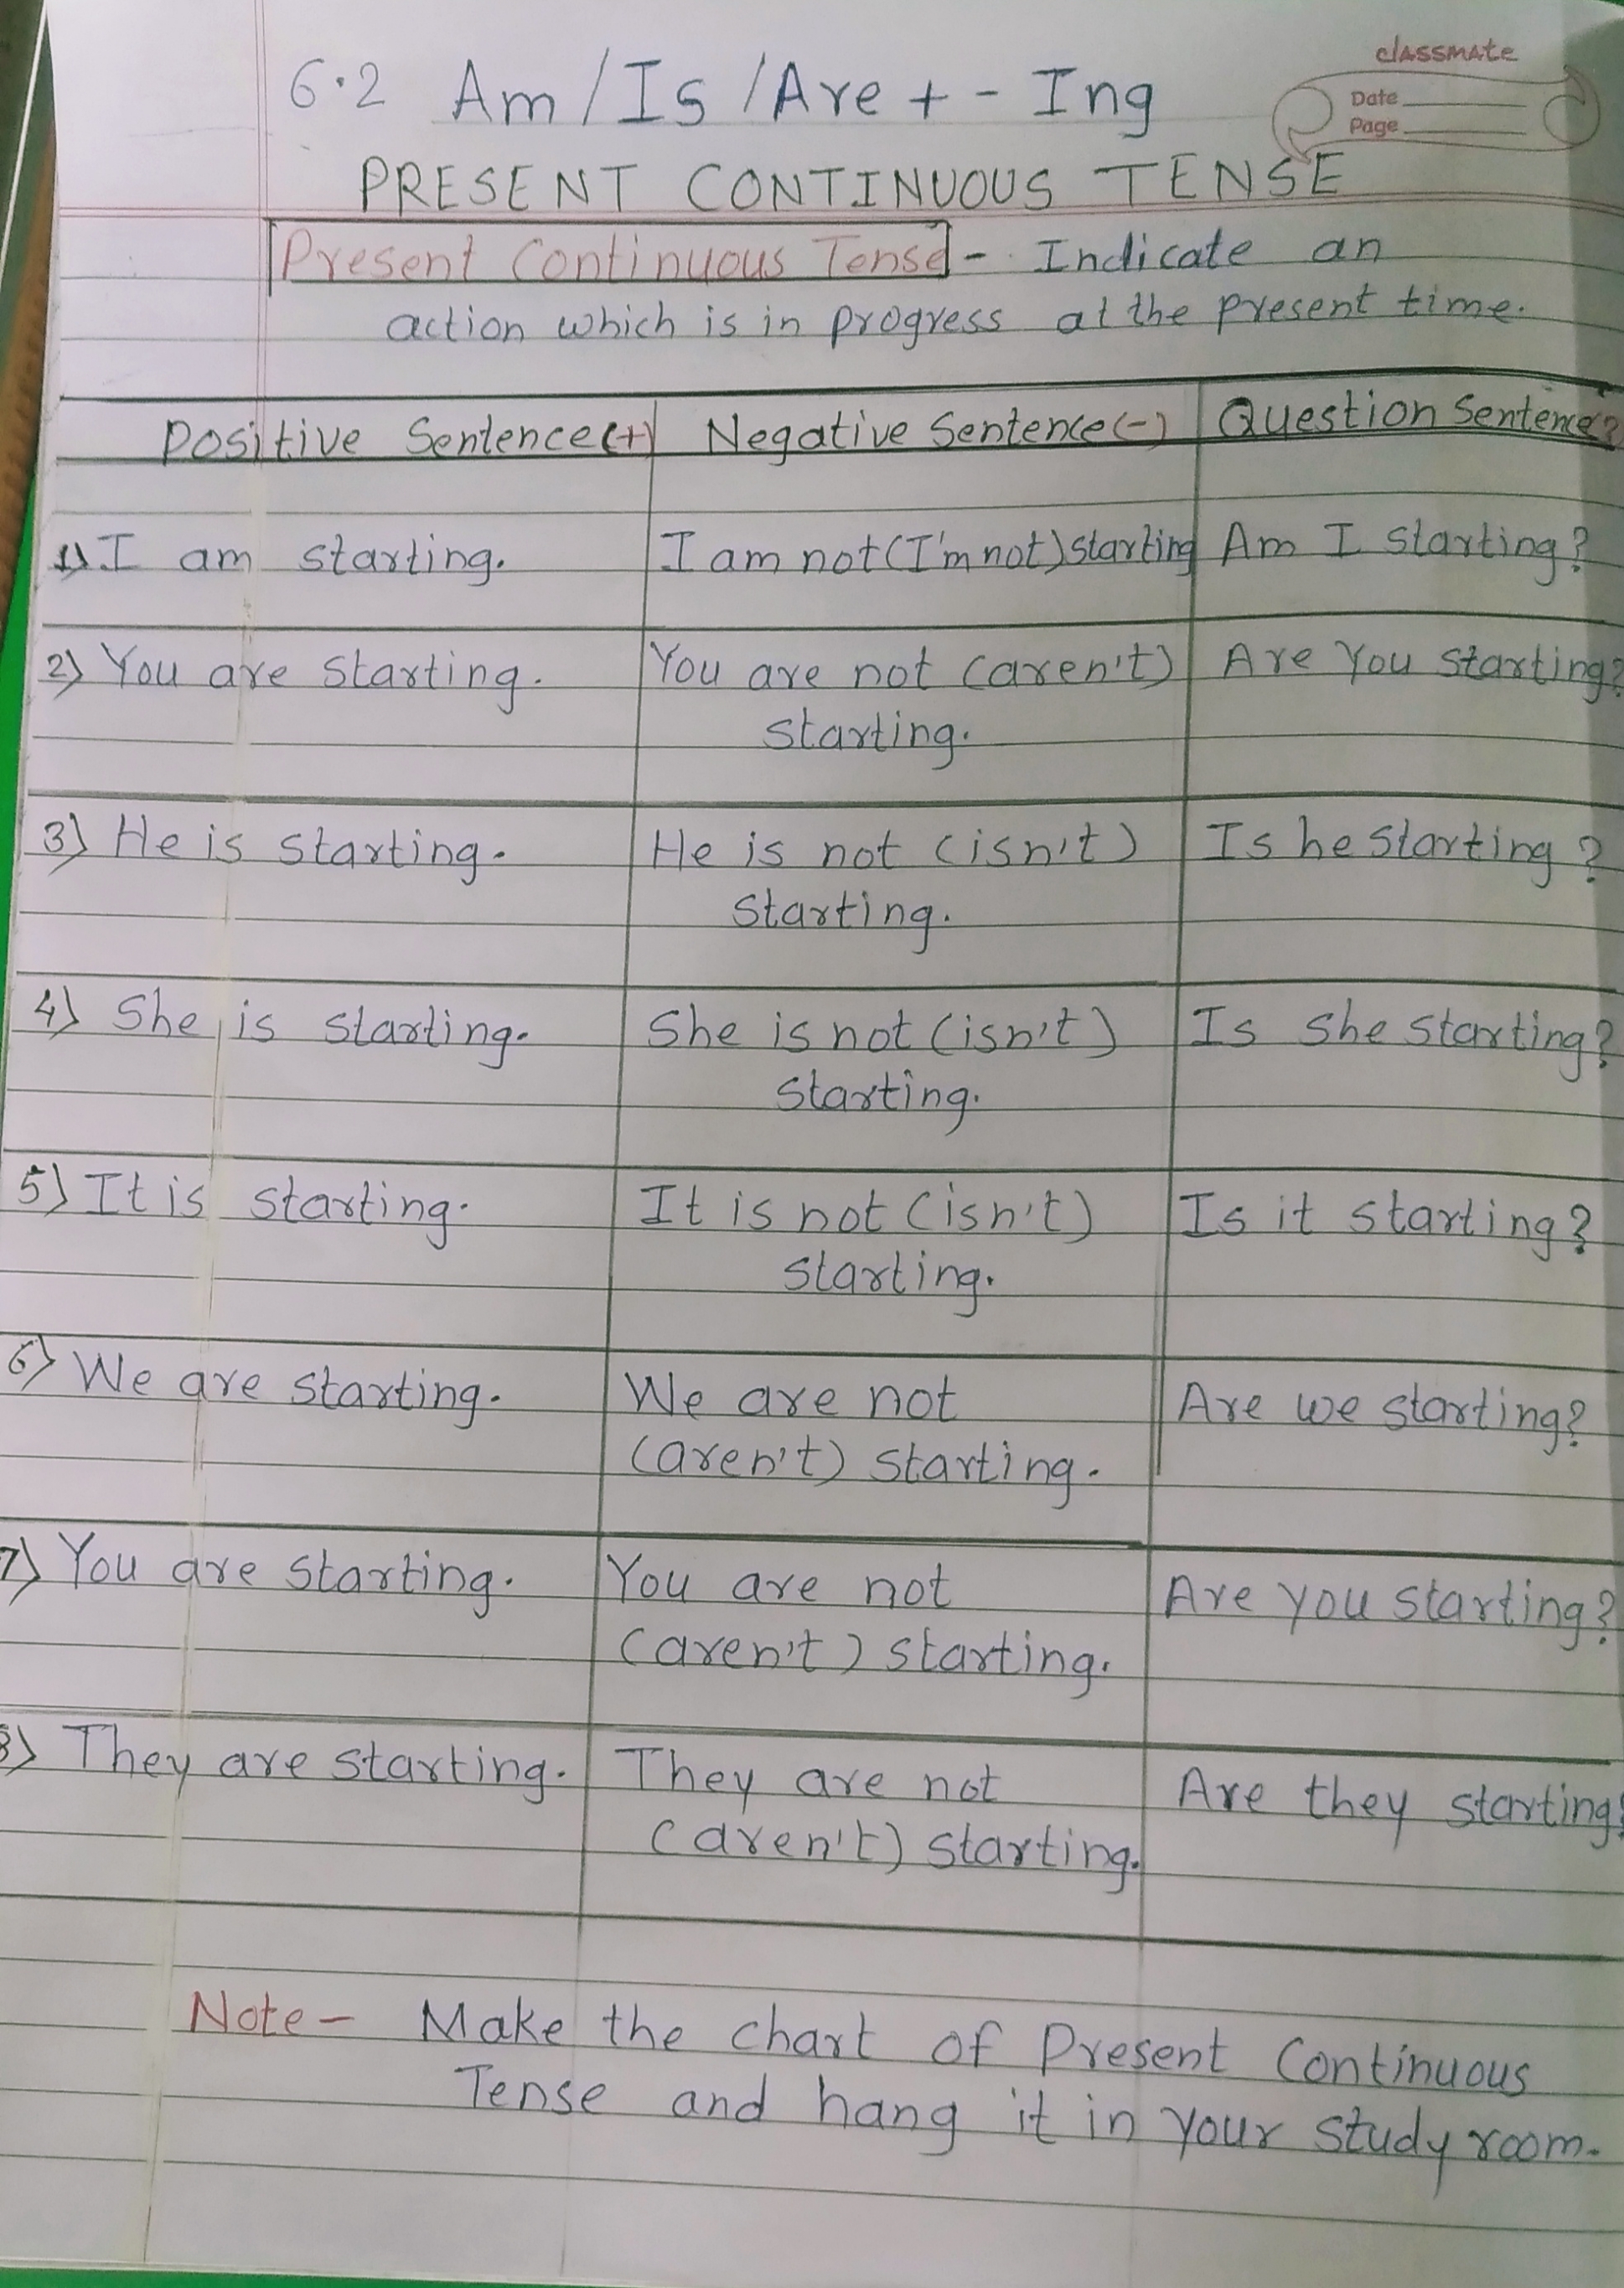 classmate
Date
Page
6.2 Am/Is/Are + - Ing
PRESENT CONTINUOUS TENSE
Present Continuous Tense - Indicate an
action which is in progress at the present time.
Positive Sentence(+) Negative Sentence(-) Question Sentence?
1) I am starting. I am not (I'm not) starting Am I starting?
2) You are starting. You are not (aren't) Are You starting?
starting.
3) He is starting. He is not (isn't) Is he starting?
starting.
4) She is starting. She is not (isn't) Is she starting?
starting.
5) It is starting. It is not (isn't) Is it starting?
starting.
6) We are starting. We are not Are we starting?
(aren't) starting.
7) You are starting. You are not Are you starting?
(aren't) starting.
8) They are starting. They are not Are they starting?
(aren't) starting.
Note - Make the chart of Present Continuous
Tense and hang it in your study room.